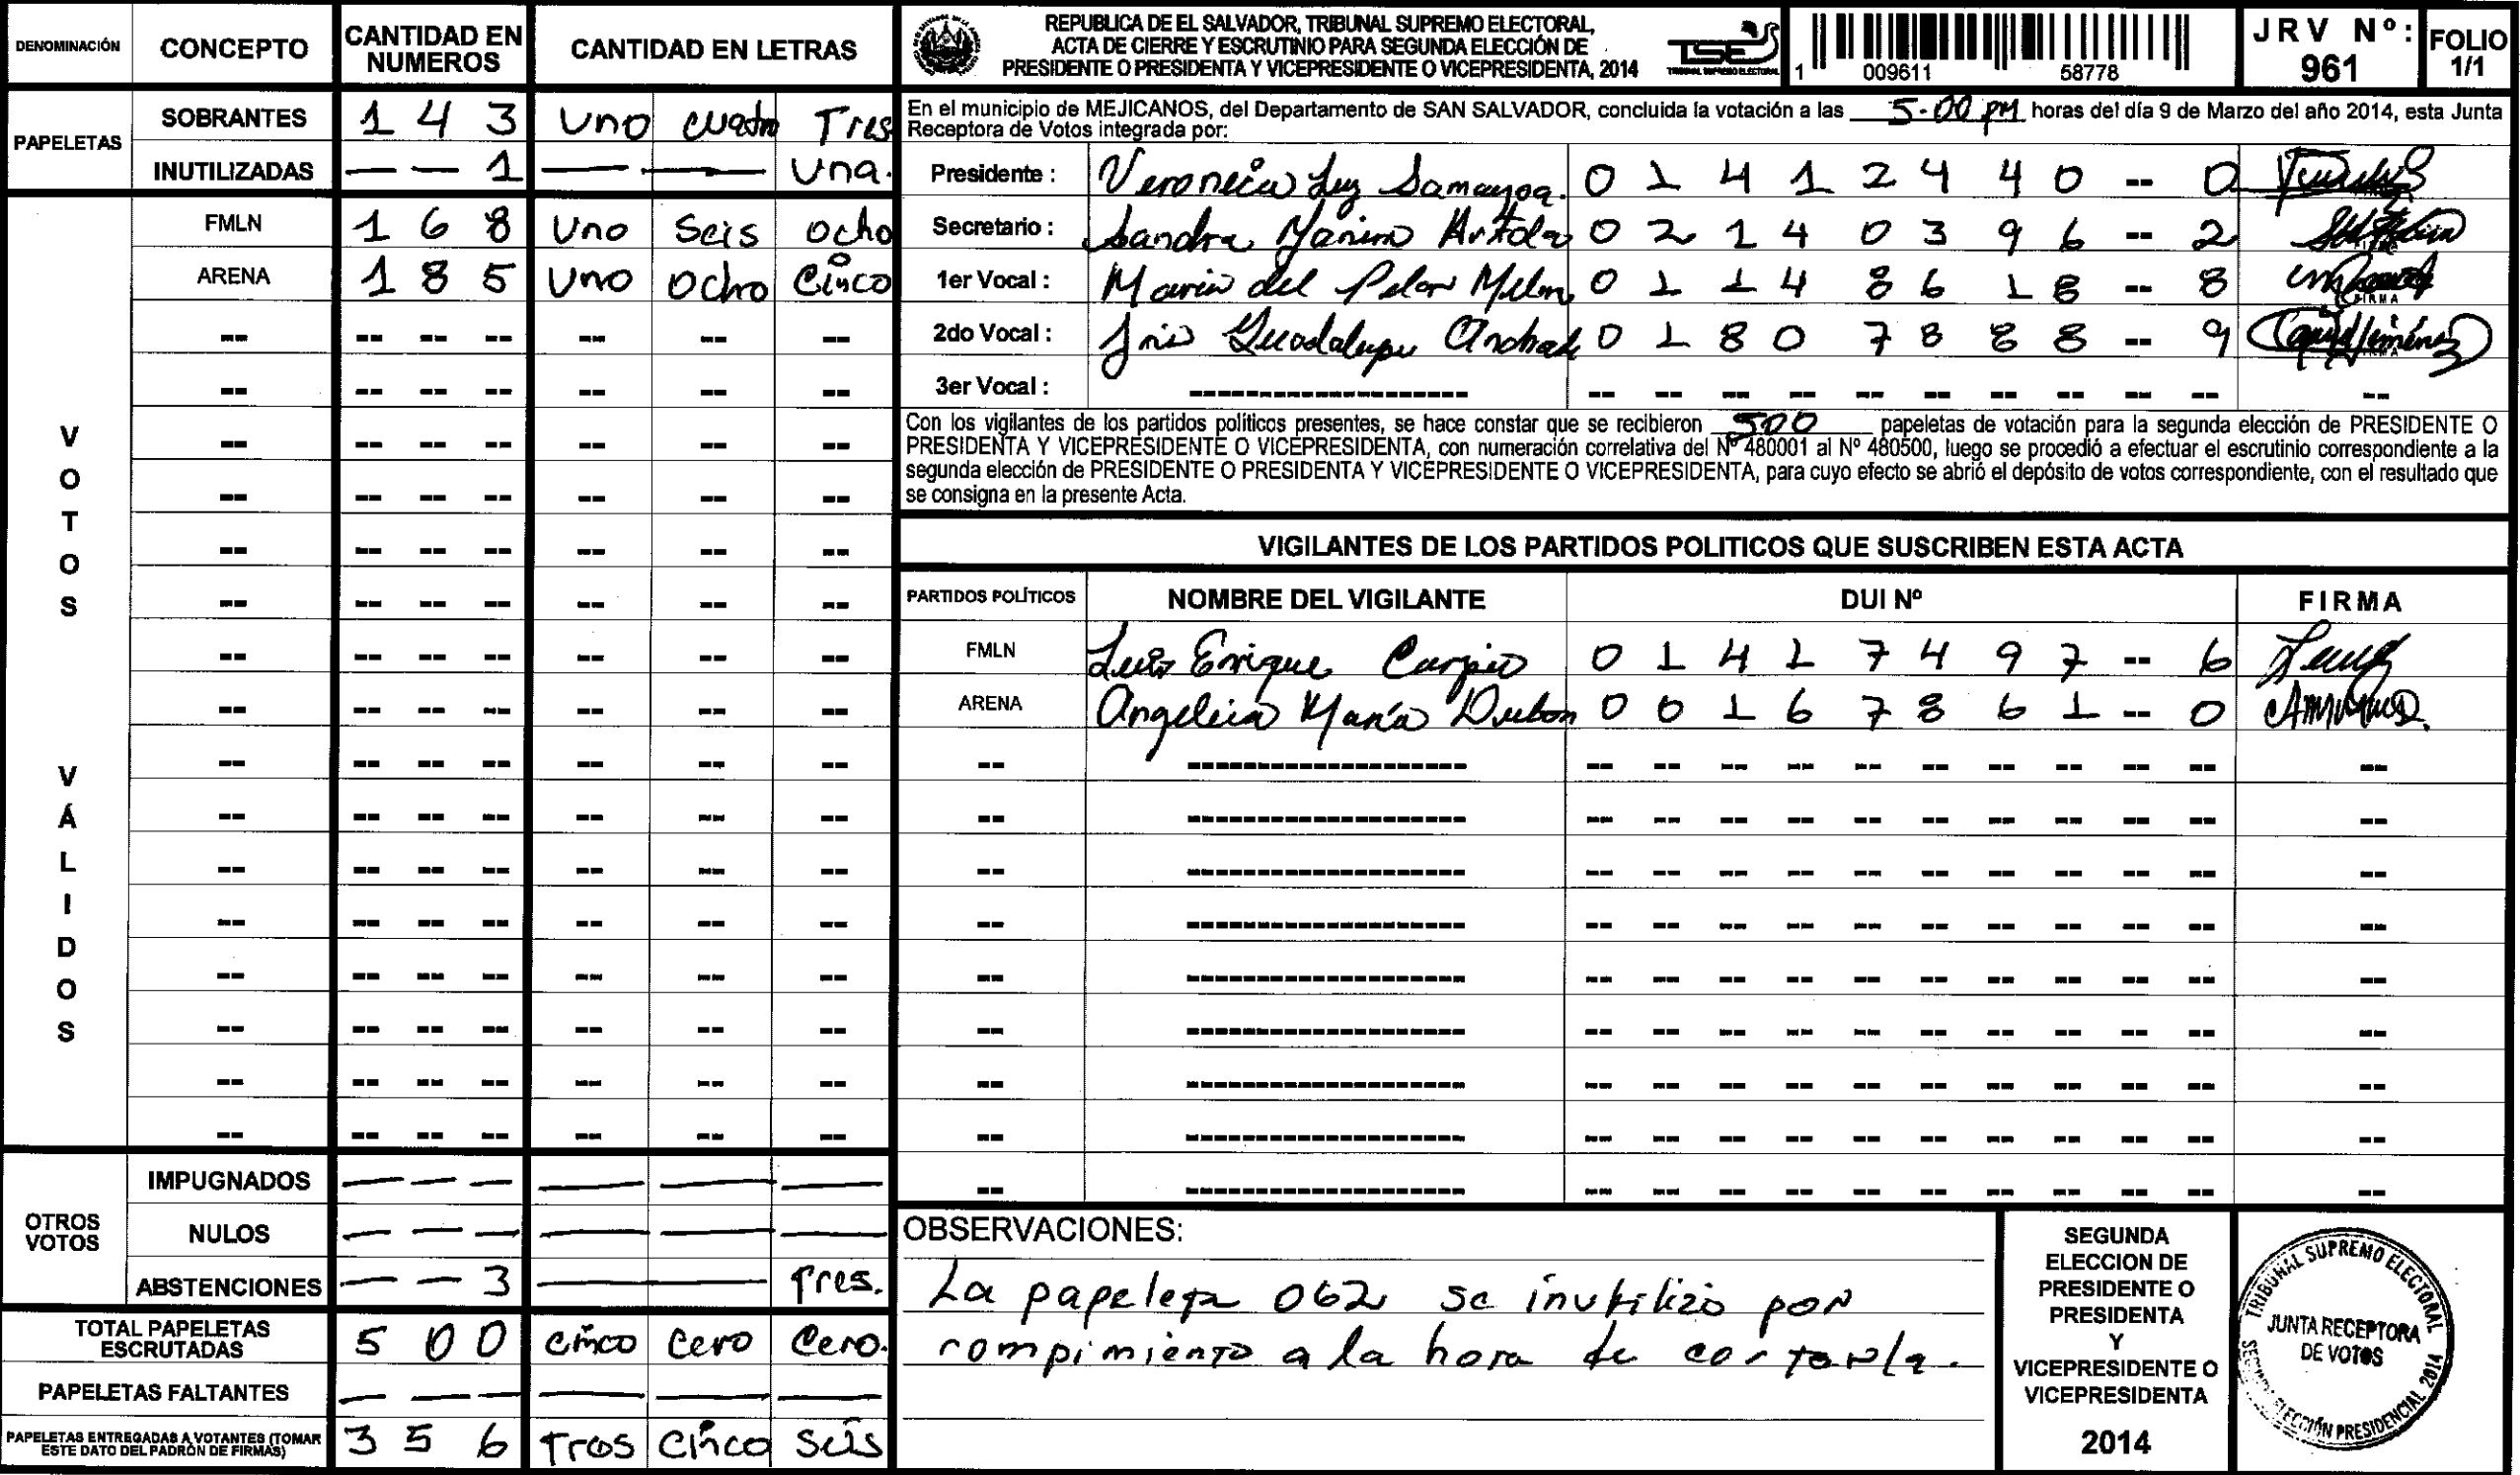 DENOMINACIÓN CONCEPTO CANTIDAD EN NUMEROS CANTIDAD EN LETRAS
PAPELETAS
SOBRANTES 1 4 3 Uno cuatro Tres
INUTILIZADAS — — 1 — — Una.
VOTOS VÁLIDOS
FMLN 1 6 8 Uno Seis Ocho
ARENA 1 8 5 Uno Ocho Cinco
OTROS VOTOS
IMPUGNADOS — — — — — —
NULOS — — — — — —
ABSTENCIONES — — 3 — — Tres.
TOTAL PAPELETAS ESCRUTADAS 5 0 0 cinco cero cero.
PAPELETAS FALTANTES — — — — — —
PAPELETAS ENTREGADAS A VOTANTES (TOMAR ESTE DATO DEL PADRÓN DE FIRMAS) 3 5 6 Tres Cinco Seis
REPUBLICA DE EL SALVADOR, TRIBUNAL SUPREMO ELECTORAL,
ACTA DE CIERRE Y ESCRUTINIO PARA SEGUNDA ELECCIÓN DE
PRESIDENTE O PRESIDENTA Y VICEPRESIDENTE O VICEPRESIDENTA, 2014
TSE
TRIBUNAL SUPREMO ELECTORAL
1 009611 58778
JRV Nº: 961
FOLIO 1/1
En el municipio de MEJICANOS, del Departamento de SAN SALVADOR, concluida la votación a las 5-00 PM horas del día 9 de Marzo del año 2014, esta Junta
Receptora de Votos integrada por:
Presidente : Veronica Luz Samayoa. 0 1 4 1 2 4 4 0 -- 0
Secretario : Sandra Artola 0 2 1 4 0 3 9 6 -- 2
1er Vocal : Maria del Pilar 0 1 1 4 8 6 1 8 -- 8
2do Vocal : Iris Guadalupe Andrade 0 1 8 0 7 8 8 8 -- 9
3er Vocal :
Con los vigilantes de los partidos políticos presentes, se hace constar que se recibieron 500 papeletas de votación para la segunda elección de PRESIDENTE O
PRESIDENTA Y VICEPRESIDENTE O VICEPRESIDENTA, con numeración correlativa del Nº 480001 al Nº 480500, luego se procedió a efectuar el escrutinio correspondiente a la
segunda elección de PRESIDENTE O PRESIDENTA Y VICEPRESIDENTE O VICEPRESIDENTA, para cuyo efecto se abrió el depósito de votos correspondiente, con el resultado que
se consigna en la presente Acta.
VIGILANTES DE LOS PARTIDOS POLITICOS QUE SUSCRIBEN ESTA ACTA
PARTIDOS POLÍTICOS NOMBRE DEL VIGILANTE DUI Nº FIRMA
FMLN Luis Enrique Carpio 0 1 4 1 7 4 9 7 -- 6
ARENA Angelica María Dubon 0 0 1 6 7 8 6 1 -- 0
OBSERVACIONES:
La papeleta 062 se inutilizo por
rompimiento a la hora de cortarla.
SEGUNDA
ELECCION DE
PRESIDENTE O
PRESIDENTA
Y
VICEPRESIDENTE O
VICEPRESIDENTA
2014
TRIBUNAL SUPREMO ELECTORAL
JUNTA RECEPTORA
DE VOTOS
SEGUNDA ELECCIÓN PRESIDENCIAL 2014